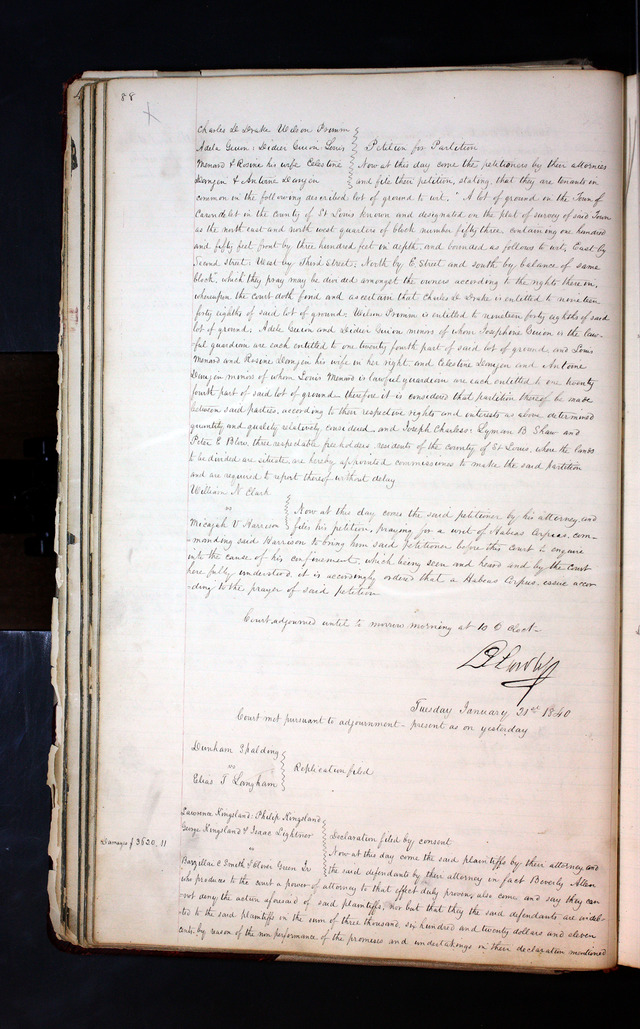 88
Charles D Drake Wilson Primm
Adele Guion: Didier Guion Louis Petition for Partition
Menard & Rosine his wife Celestine Now at this day come the petitioners by their attornies
Danjen & Antoine Danjen and file their petition, stating, that they are tenants in
common in the following described lot of ground to wit, "A lot of ground in the Town of
Carondelet in the county of St Louis known and designated on the plat of survey of said Town
as the north east and north west quarters of block number fifty three containing one hundred
and fifty feet front by three hundred feet in depth, and bounded as follows to wit; East by
Second street. West by third Street: North by E Street and south by balance of same
block", which they pray may be divided amongst the owners according to the rights therein,
whereupon the court doth find and ascertain that Charles D Drake is entitled to nineteen
forty eighths of said lot of ground. Wilson Primm is entitled to nineteen forty eighths of said
lot of ground. Adele Guion and Didier Guion minors of whom Josephine Guion is the law-
ful guardian are each entitled to one twenty fourth part of said lot of ground, and Louis
Menard and Rosine Danjen his wife in her right and Celestine Danjen and Antoine
Danjen minors of whom Louis Menard is lawful guardian are each entitled to one twenty
fourth part of said lot of ground. therefore it is considered that partition thereof be made
between said parties, according to their respective rights and interests as above determined
quantity and quality relatively considered and Joseph Charless: Lyman B Shaw and
Peter E Blow, three respectable free holders residents of the county of St Louis, where the lands
to be divided are situate, are hereby appointed commissioners to make the said partition
and are required to report thereof without delay
William N Clark
vs Now at this day comes the said petitioner by his attorney, and
Micajah V Harrison files his petition, praying for a writ of Habeas Corpus. com-
manding said Harrison to bring him said Petitioner before this Court to enquire
into the cause of his confinement, which being seen and heard and by the court
here fully understood, it is accordingly ordered that a Habeas Corpus issue accor-
ding to the prayer of said petition
Court adjourned until to morrow morning at 10 O clock—
Tuesday January 21st 1840
Court met pursuant to adjournment - present as on yesterday
Dunham Spalding
vs Replication filed
Elias T Langham
Lawrence Kingsland: Philip Kingsland
George Kingsland & Isaac Lightner Declaration filed by consent
Damages $3620.11 vs Now at this day come the said plaintiffs by their attorney, and
Barzillai C Smith & Oliver Green Jr the said defendants by their attorney in fact Beverly Allen
who produces to the court a power of attorney to that effect duly proven, also come and say they can-
not deny the action aforesaid of said plaintiffs, nor but that they the said defendants are indeb-
ted to the said plaintiffs in the sum of three thousand, six hundred and twenty dollars and eleven
cents by reason of the non performance of the promises and undertakings in their declaration mentioned